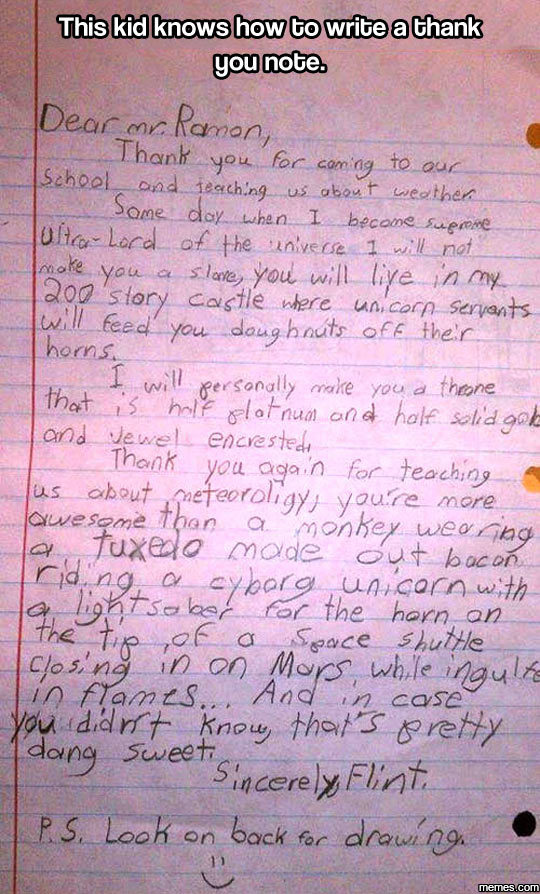 This kid knows how to write a thank
you note.
Dear mr. Ramon,
Thank you for coming to our
School and teaching us about weather.
Some day when I become supreme
Ultra-Lord of the universe I will not
make you a slave, you will live in my
200 story castle where unicorn servants
will feed you doughnuts off their
horns.
I will personally make you a throne
that is half platnum and half solid gold
and jewel encrested.
Thank you again for teaching
us about meteoroligy, you're more
awesome than a monkey wearing
a tuxedo made out bacon
riding a cyborg unicorn with
a lightsaber for the horn on
the tip of a Space shuttle
closing in on Mars while ingulfed
in flames... And in case
you didn't know, that's pretty
dang sweet.
Sincerely, Flint.
P.S. Look on back for drawing.
memes.com